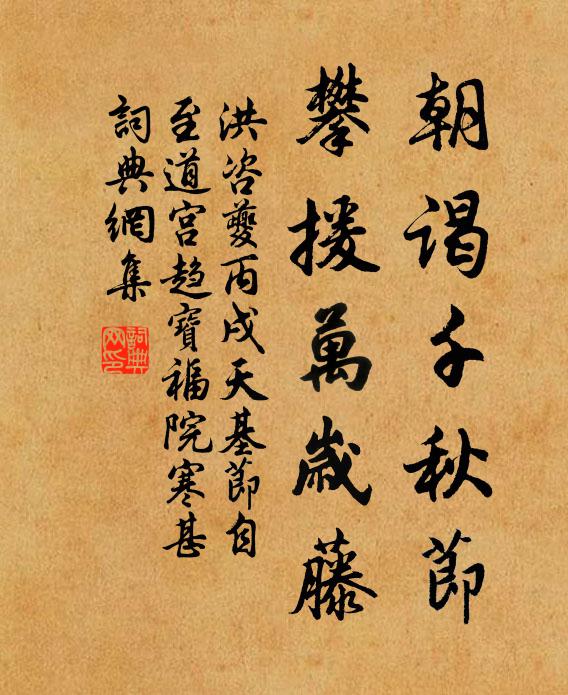 朝謁千秋節
攀援萬歲藤
洪咨夔丙戌天基節自
至道宮趋寶福院寒甚
詞典網集
詞典网印